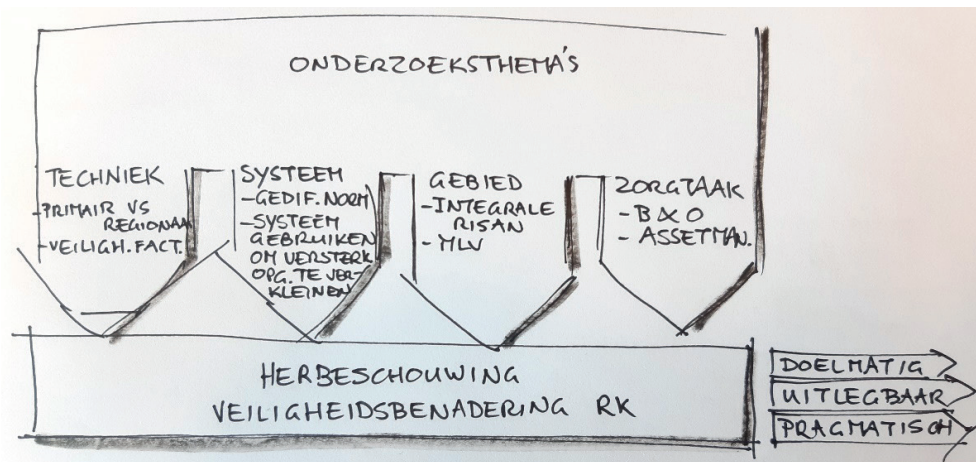 ONDERZOEKSTHEMA'S
TECHNIEK
-PRIMAIR VS
REGIONAA
-VEILIGH.FACT.
SYSTEEM
-GEDIF.NORM
-SYSTEEM
GEBRUIKEN
OM VERSTERK
OPG. TE VER-
KLEINEN
GEBIED
-INTEGRALE
RISAN
-MLV
ZORGTAAK
- B&O
- ASSETMAN.
HERBESCHOUWING
VEILIGHEIDSBENADERING RK
DOELMATIG
UITLEGBAAR
PRAGMATISCH